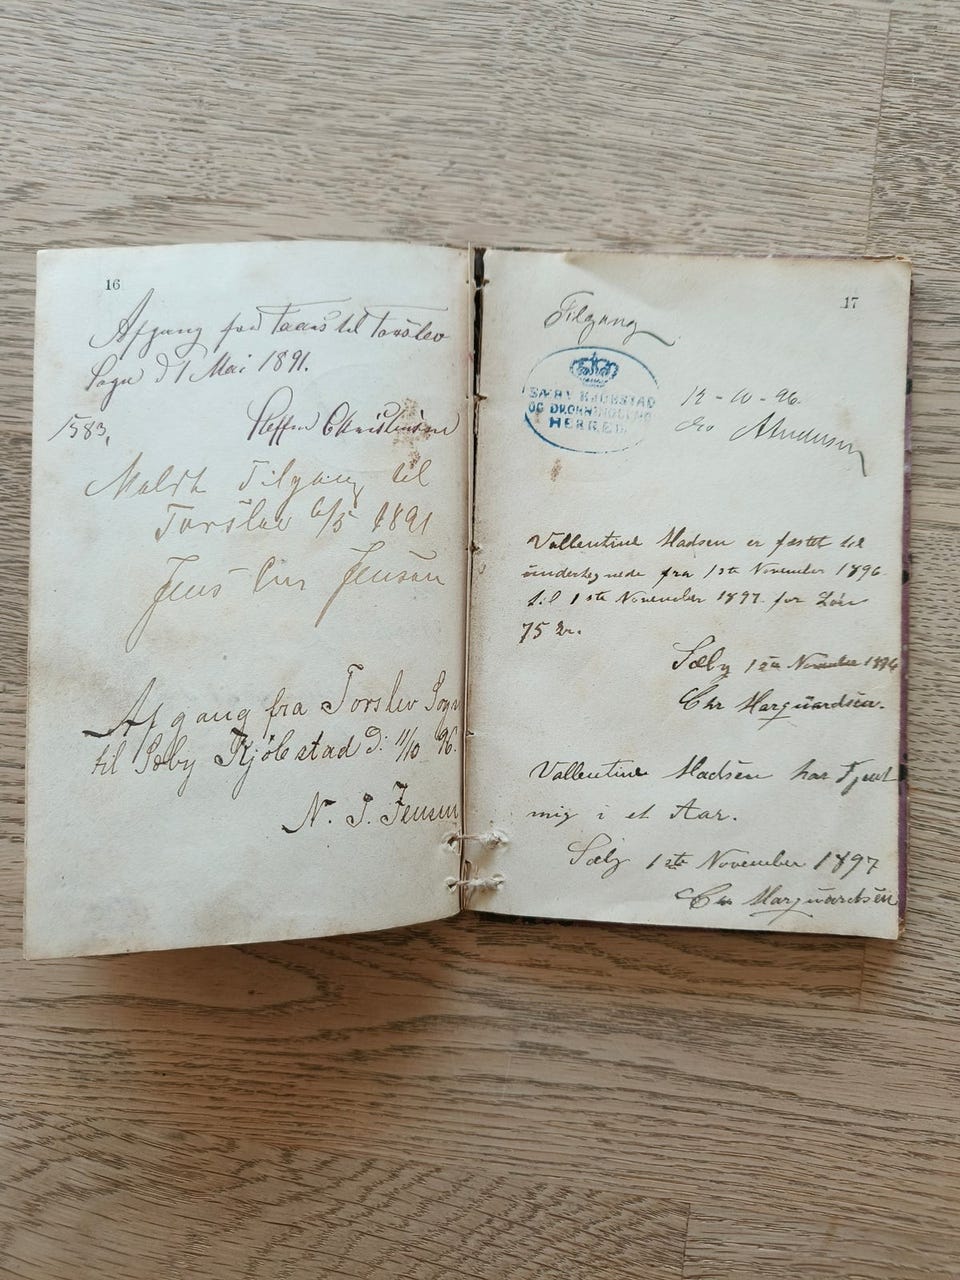 16
Afgang fra Taars til Torslev
Sogn d 1 Mai 1891.
1583, Steffen Christensen
Meldt Tilgang til
Torslev 6/5 1891
Jens Chr Jensen
Afgang fra Torslev Sogn
til Sæby Kjøbstad d: 11/10 96.
N. P. Jensen
17
Tilgang
SÆBY KJØBSTAD
OG DRONNINGLUND
HERRED
12-10-96.
Andersen
Vallentine Madsen er fæstet til
undertegnede fra 1ste November 1896
til 1ste November 1897 for Løn
75 Kr.
Sæby 1ste November 1896
Chr Marquardsen.
Vallentine Madsen har Tjent
mig i et Aar.
Sæby 1ste November 1897
Chr Marquardsen